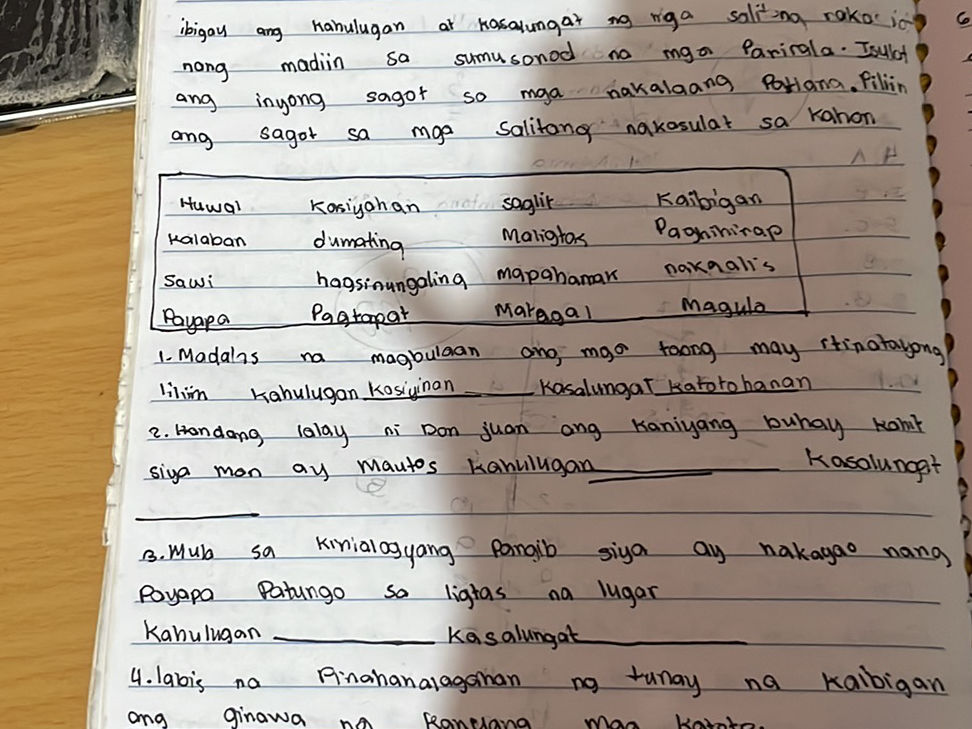 ibigay ang kahulugan at kasalungat ng mga salitang
nang madiin sa sumusonod na mga Parirala. Isulat
ang inyong sagot sa mga nakalaang Patlang. Piliin
ang sagot sa mga salitang nakasulat sa kahon
Huwal Kasiyahan saglit Kaibigan
Kalaban dumating Maligtas Paghihirap
Sawi nagsinungaling mapahamak nakaalis
Payapa Pagtapat Matagal Magulo
1. Madalas na magbulaan ang mga taong may itinatagong
lihim kahulugan kasiyinan kasalungat katotohanan
2. Handang ialay ni Don juan ang kaniyang buhay kahit
siya man ay mautas kahulugan kasalungat
3. Mula sa Panğib siya ay nakayao nang
Payapa Patungo sa ligtas na lugar
Kahulugan Kasalungat
4. labis na Pinahahalagahan ng tunay na kaibigan
ang ginawa ng kanyang mga katoto.